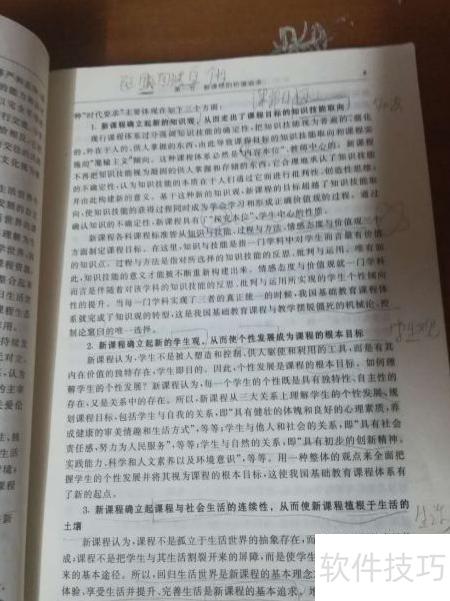 新课程的价值追求
种“时代要求”主要体现在如下三个方面：
1. 新课程确立起新的知识观，从而走出了课程目标的知识技能取向
现行课程体系过分强调知识技能的确定性，把知识技能视为普遍的、固化
的、外在于人的、供人掌握的东西，由此导致课程目标的知识技能取向和课程实
施的“灌输主义”倾向。这种课程体系必然是“内容本位”、教师中心的。新课程
不再把知识技能视为凝固的供人掌握和存储的东西，它合理地承认了知识技能
的不确定性，认为知识技能的本质在于人们通过它而进行批判性、创造性思维，
并由此构建新的意义。基于这种新的知识观，新课程的目标超越了知识技能取
向，使知识技能的获得过程同时成为学会学习和形成正确价值观的过程。通过
确认知识的不确定性，新课程具有了“探究本位”、学生中心的性质。
新课程各科课程标准皆从知识与技能、过程与方法、情感态度与价值观三个
方面制定课程目标。在这里，知识与技能是指一门学科中对学生而言最有价值
的知识点。过程与方法是指对所选择的知识技能的反思、批判与运用。唯有如
此，知识技能的意义才能被不断重新构建出来。情感态度与价值观就一门学科
而言是伴随着对该学科的知识技能的反思、批判与运用所实现的学生个性倾向
性的提升。当每一门学科实现了三者的真正统一的时候，我国基础教育课程体
系就完成了知识观的转型，这是我国基础教育课程与教学摆脱僵死的机械论、控
制论窠臼的唯一选择。
2. 新课程确立起新的学生观，从而使个性发展成为课程的根本目标
新课程认为，学生不是被人塑造和控制、供人驱使和利用的工具，而是有其
内在价值的独特存在，学生即目的。因此，个性发展是课程的根本目标。如何理
解学生的个性发展？新课程认为，每一个学生的个性既是具有独特性、自主性的
存在，又是关系中的存在。所以，新课程从三大关系上理解学生的个性发展、规
划课程目标，包括学生与自我的关系，即“具有健壮的体魄和良好的心理素质，养
成健康的审美情趣和生活方式”，等等；学生与他人和社会的关系，即“具有社会
责任感，努力为人民服务”，等等；学生与自然的关系，即“具有初步的创新精神、
实践能力、科学和人文素养以及环境意识”，等等。用一种整体的观点来全面把
握学生的个性发展并将其视为课程的根本目标，这使我国基础教育课程体系有
了新的起点。
3. 新课程确立起课程与社会生活的连续性，从而使新课程植根于生活的
土壤
新课程认为，课程不是孤立于生活世界的抽象存在，而
成；课程不是把学生与其生活割裂开来的屏障，而是使学生
来的基本途径。所以，回归生活世界是新课程的基本理念
体验、享受生活并提升、完善生活是新课程的基本追求，
软件技巧